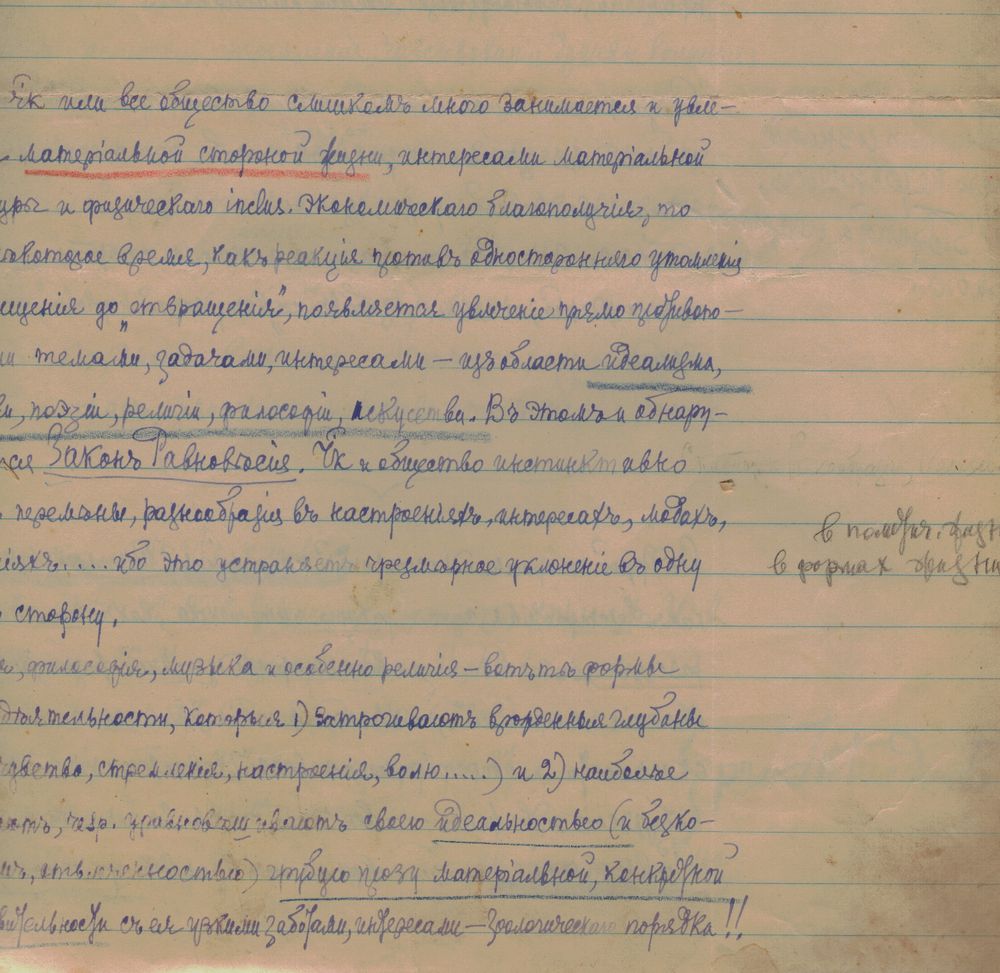 Чк или все общество слишкомъ много занимается и увле-
матеріальной стороной жизни, интересами матеріальной
уры и физическаго inclus. экономическаго благополучія, то
некоторое время, какъ реакція противъ односторонняго утомленія
ищенія до „отвращенія", появляется увлеченіе прямо противопо-
ми темами, задачами, интересами — изъ области идеализма,
ви, поэзіи, религіи, философіи, искусства. Въ этомъ и обнару-
ся Законъ Равновѣсія. Чк и общество инстинктивно
перемѣны, разнообразія въ настроеніяхъ, интересахъ, модахъ,
ніяхъ.... ибо это устраняетъ чрезмѣрное уклоненіе въ одну
сторону.
в полит. жизн
в формах жизни
философія, музыка и особенно религія — вотъ тѣ формы
дѣятельности, которыя 1) затрогиваютъ врожденныя глубины
чувство, стремленія, настроенія, волю.....) и 2) наиболѣе
уравновѣшиваютъ своею идеальностью (и безко-
отвлеченностью) грубую прозу матеріальной, конкретной
вительности съ ея узкими заботами, интересами — зоологическаго порядка!!